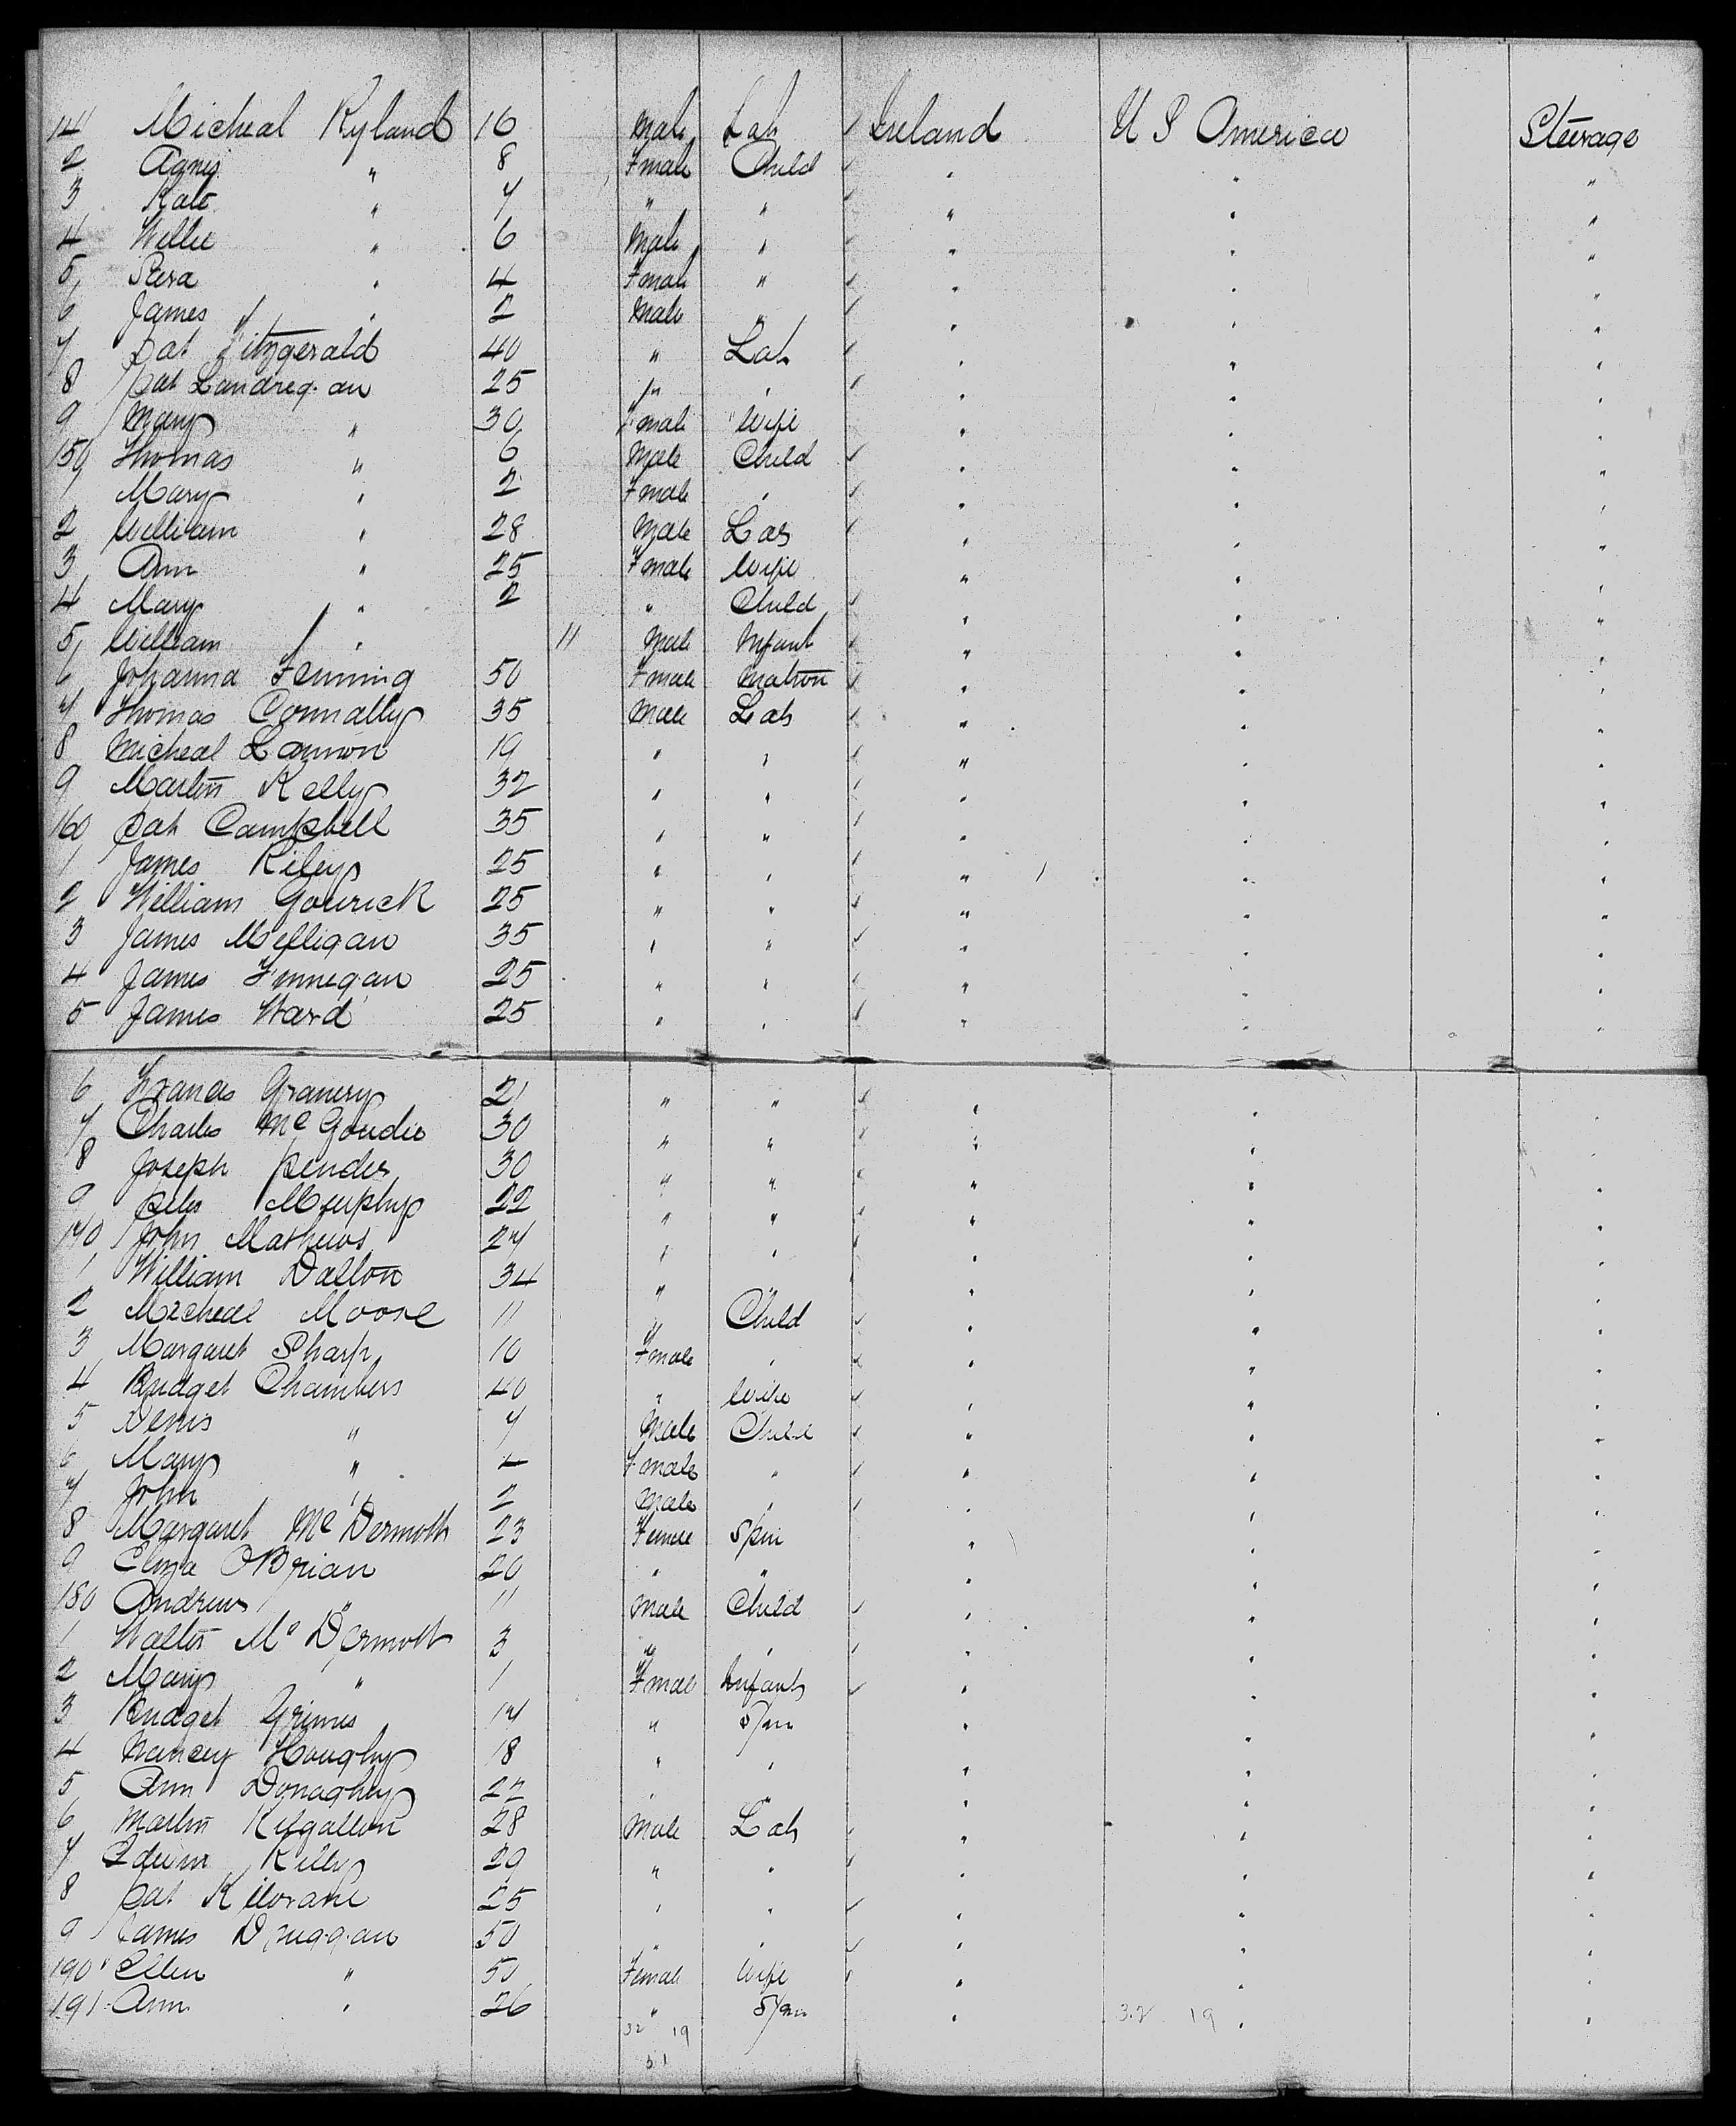 141 Micheal Ryland 16 Male Lab Ireland U S America Steerage
2 Agnes " 8 Female Child " " "
3 Kate " 7 " " " " "
4 Willie " 6 Male " " " "
5 " 4 Female " " " "
6 James " 2 Male " " " "
7 Pat Fitzgerald 40 " Lab " " "
8 Pat Landregan 25 " " " " "
9 Mary " 30 Female Wife " " "
150 Thomas " 6 Male Child " " "
1 Mary " 2 Female " " " "
2 William " 28 Male Lab " " "
3 Ann " 25 Female Wife " " "
4 Mary " 2 " Child " " "
5 William " 11 Male Infant " " "
6 Johanna Fenning 50 Female Matron " " "
7 Thomas Connally 35 Male Lab " " "
8 Micheal Lannon 19 " " " " "
9 Martin Kelly 32 " " " " "
160 Pat Campbell 35 " " " " "
1 James Riley 25 " " " " "
2 William Gourick 25 " " " " "
3 James Melligan 35 " " " " "
4 James Finnegan 25 " " " " "
5 James Ward 25 " " " " "
6 Frances Granery 21 " " " " "
7 Charles McGoudie 30 " " " " "
8 Joseph Pender 30 " " " " "
9 Peter Murphy 22 " " " " "
170 John Mathews 27 " " " " "
1 William Dalton 34 " " " " "
2 Micheal Moore 11 " Child " " "
3 Margaret Sharp 10 Female " " " "
4 Bridget Chambers 40 " Wife " " "
5 Denis " 7 Male Child " " "
6 Mary " 4 Female " " " "
7 John " 2 Male " " " "
8 Margaret McDermott 23 Female Spin " " "
9 Eliza OBrian 20 " " " " "
180 Andrew " 11 Male Child " " "
1 Walter McDermott 3 " " " " "
2 Mary " 1 Female Infant " " "
3 Bridget Grimes 17 " Spin " " "
4 Nancy Houghy 18 " " " " "
5 Ann Donaghey 22 " " " " "
6 Martin Kilgallon 28 Male Lab " " "
7 Edwin Killy 29 " " " " "
8 Pat Killorane 25 " " " " "
9 James Druggan 50 " " " " "
190 Ellen " 50 Female Wife " " "
191 Ann " 26 " Spin " " "
32 19 32 19
51